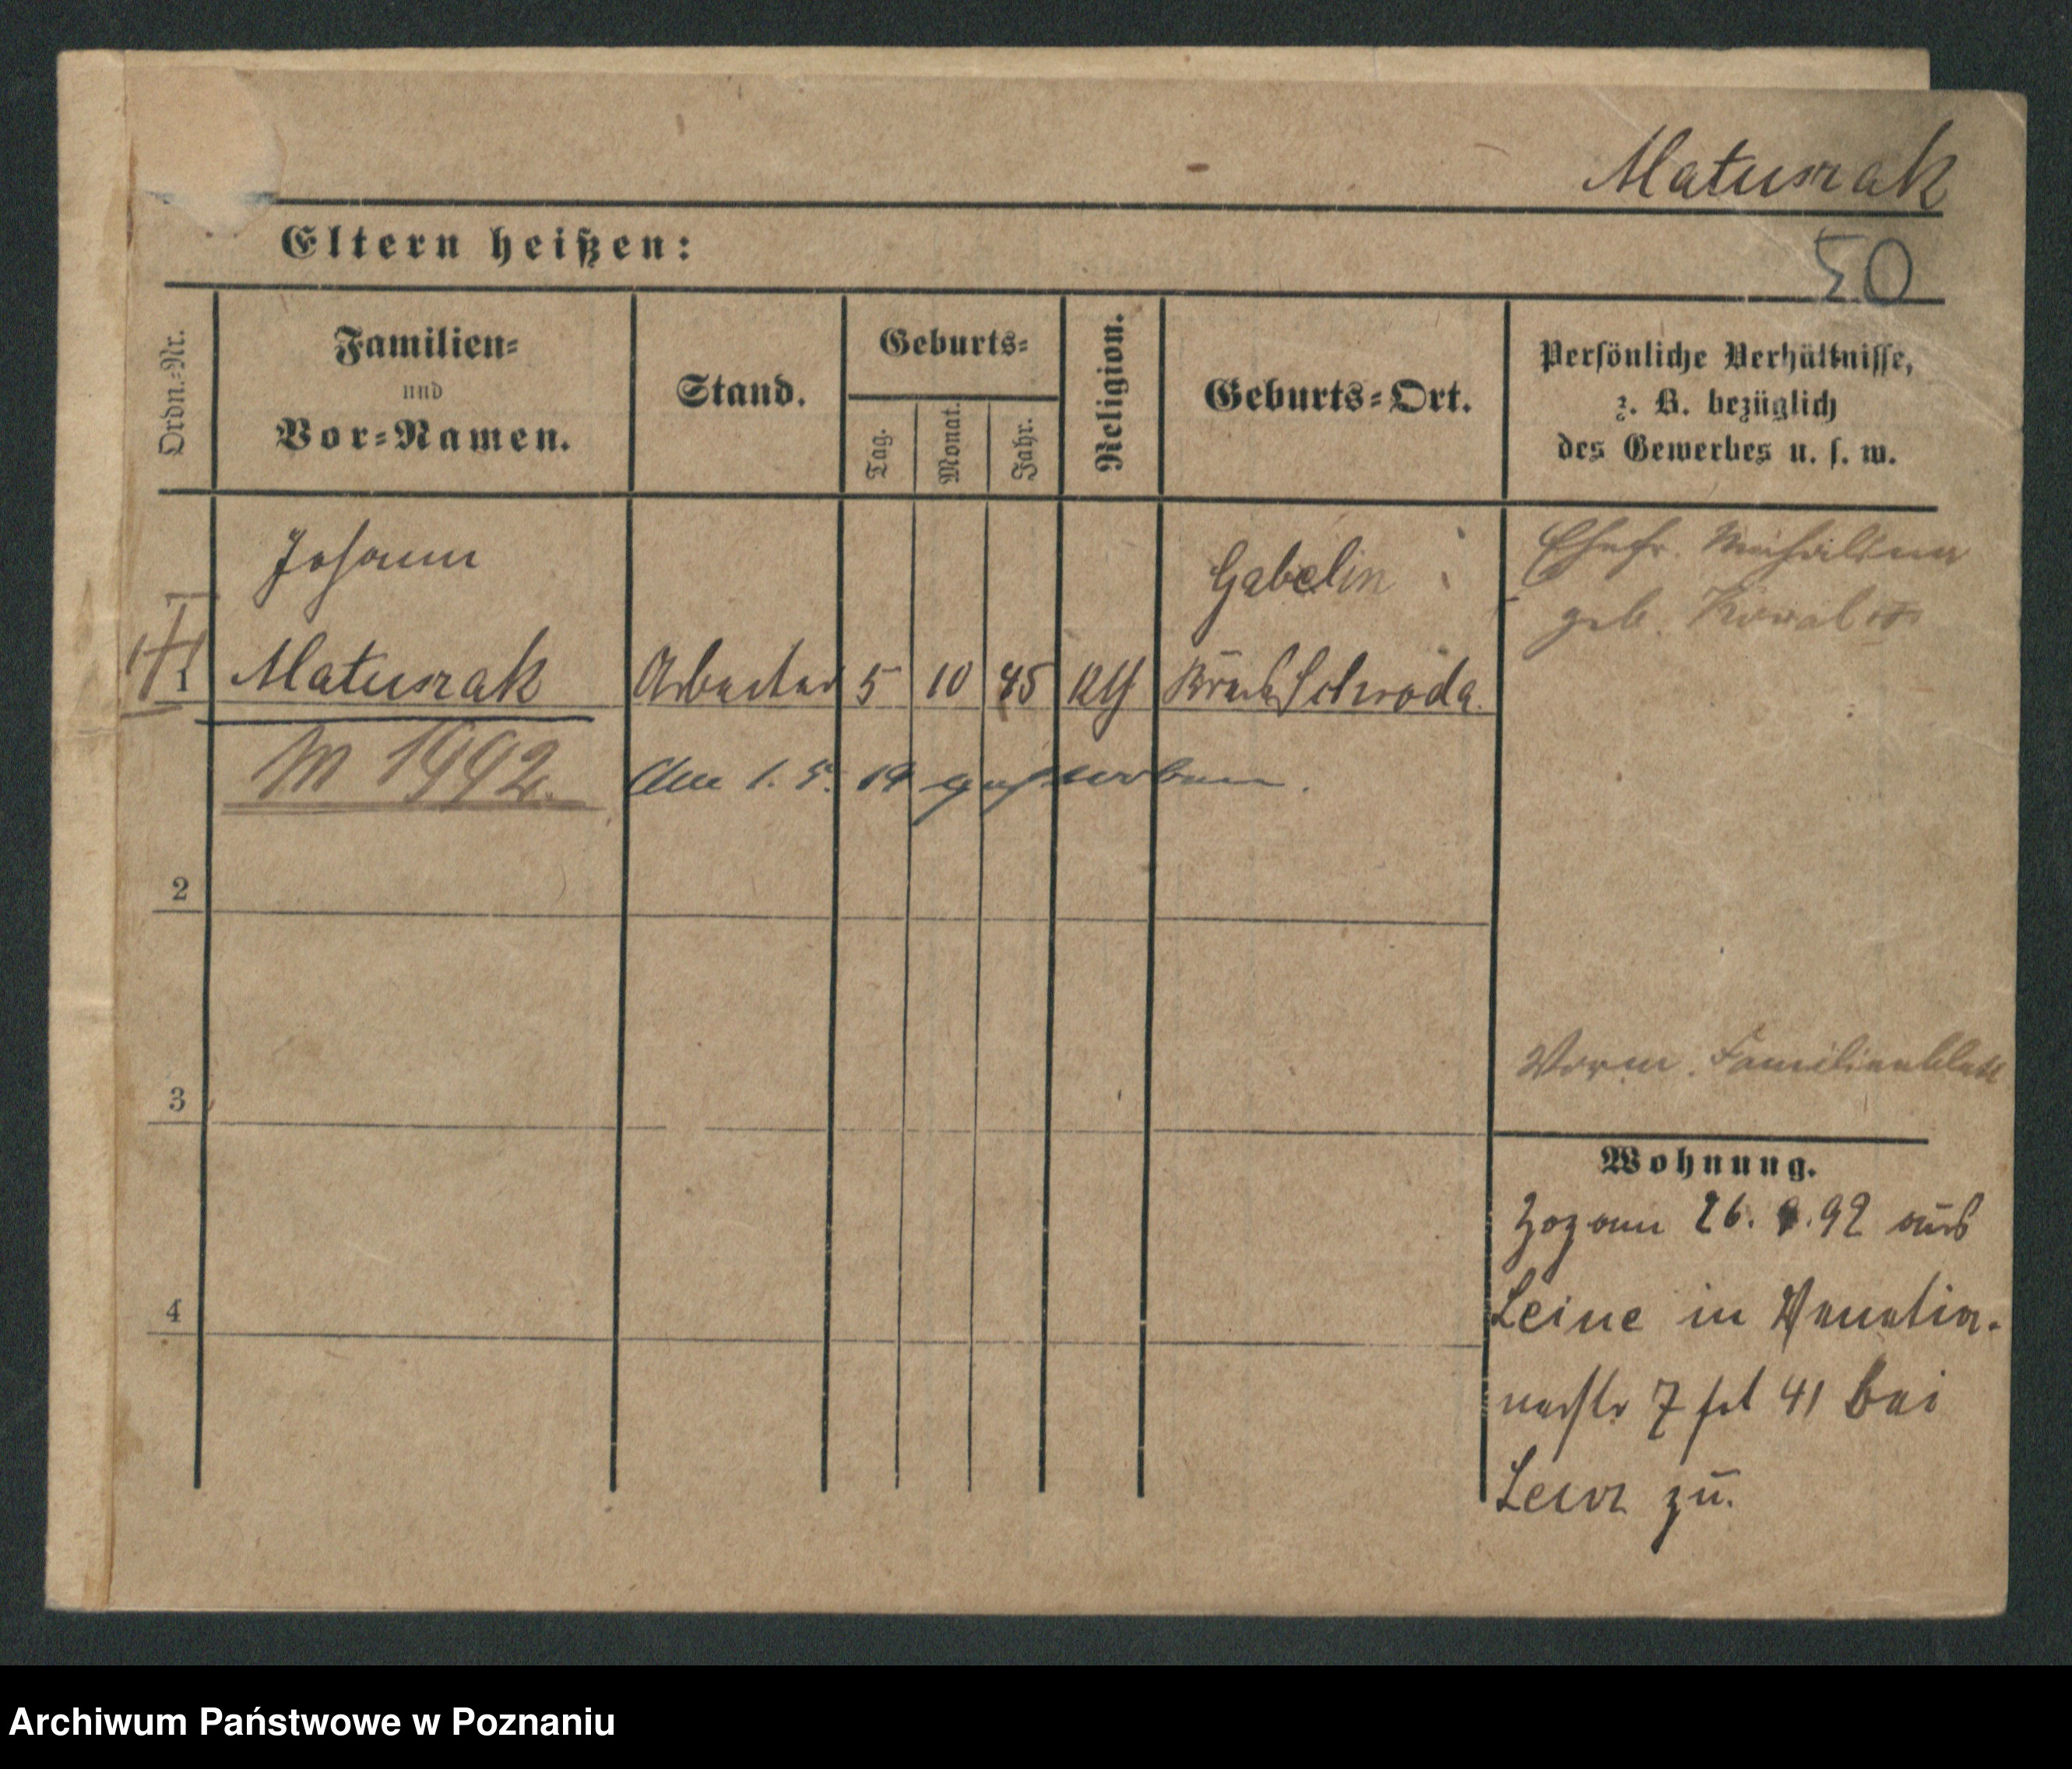 Matuszak
50
Eltern heißen:
Ordn.=Nr.
Familien=
und
Vor=Namen.
Stand.
Geburts=
Tag.
Monat.
Jahr.
Religion.
Geburts=Ort.
Persönliche Verhältnisse,
z. B. bezüglich
des Gewerbes u. s. w.
Johann
Gabelin
Ehefr.
geb.
1 Matuszak Arbeiter 5 10 45 Kr Schroda.
M 1992.
Am 1. 5. 19 gestorben.
2
3
Familienblatt
Wohnung.
Zozann 26. 9. 92 aus
Leine in Venetia-
nerstr 7 fol 41 bei
zu.
4
Archiwum Państwowe w Poznaniu